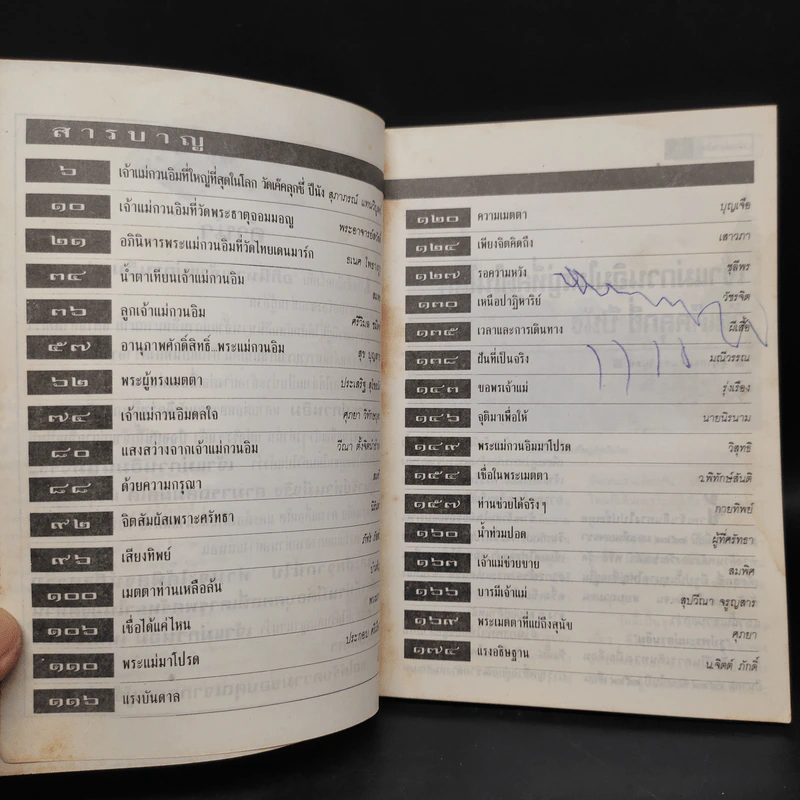 สารบาญ
๖ เจ้าแม่กวนอิมที่ใหญ่ที่สุดในโลก วัดเค๊คลุกซี่ ปีนัง สุภาภรณ์
๑๐ เจ้าแม่กวนอิมที่วัดพระธาตุจอมมอญ พระอาจารย์
๒๑ อภินิหารพระแม่กวนอิมที่วัดไทยเดนมาร์ก ธเนศ
๓๔ น้ำตาเทียนเจ้าแม่กวนอิม
๓๖ ลูกเจ้าแม่กวนอิม ศรีวิมล
๕๗ อานุภาพศักดิ์สิทธิ์..พระแม่กวนอิม สุข
๖๒ พระผู้ทรงเมตตา ประเสริฐ
๗๔ เจ้าแม่กวนอิมดลใจ ศุภยา
๘๐ แสงสว่างจากเจ้าแม่กวนอิม วีณา
๘๘ ด้วยความกรุณา
๙๒ จิตสัมผัสเพราะศรัทธา
๙๖ เสียงทิพย์
๑๐๐ เมตตาท่านเหลือล้น
๑๐๖ เชื่อได้แค่ไหน ประกอบ
๑๑๐ พระแม่มาโปรด
๑๑๖ แรงบันดาล
๑๒๐ ความเมตตา บุญเจือ
๑๒๔ เพียงจิตคิดถึง เสาวภา
๑๒๗ รอความหวัง ชุลีพร
๑๓๐ เหนือปาฏิหาริย์ วัชรจิต
๑๓๕ เวลาและการเดินทาง ผีเสื้อ
๑๓๘ ฝันที่เป็นจริง มณีวรรณ
๑๔๓ ขอพรเจ้าแม่ รุ่งเรือง
๑๔๖ จุติมาเพื่อให้ นายนิรนาม
๑๔๙ พระแม่กวนอิมมาโปรด วิสุทธิ
๑๕๔ เชื่อในพระเมตตา ว.พิทักษ์สันติ
๑๕๗ ท่านช่วยได้จริงๆ กายทิพย์
๑๖๐ น้ำท่วมปอด ผู้ที่ศรัทธา
๑๖๓ เจ้าแม่ช่วยขาย สมพิศ
๑๖๖ บารมีเจ้าแม่ สุปวีณา จรูญสาร
๑๖๙ พระเมตตาที่แม้ถึงสุนัข ศุภยา
๑๗๔ แรงอธิษฐาน น.จิตต์ ภักดิ์